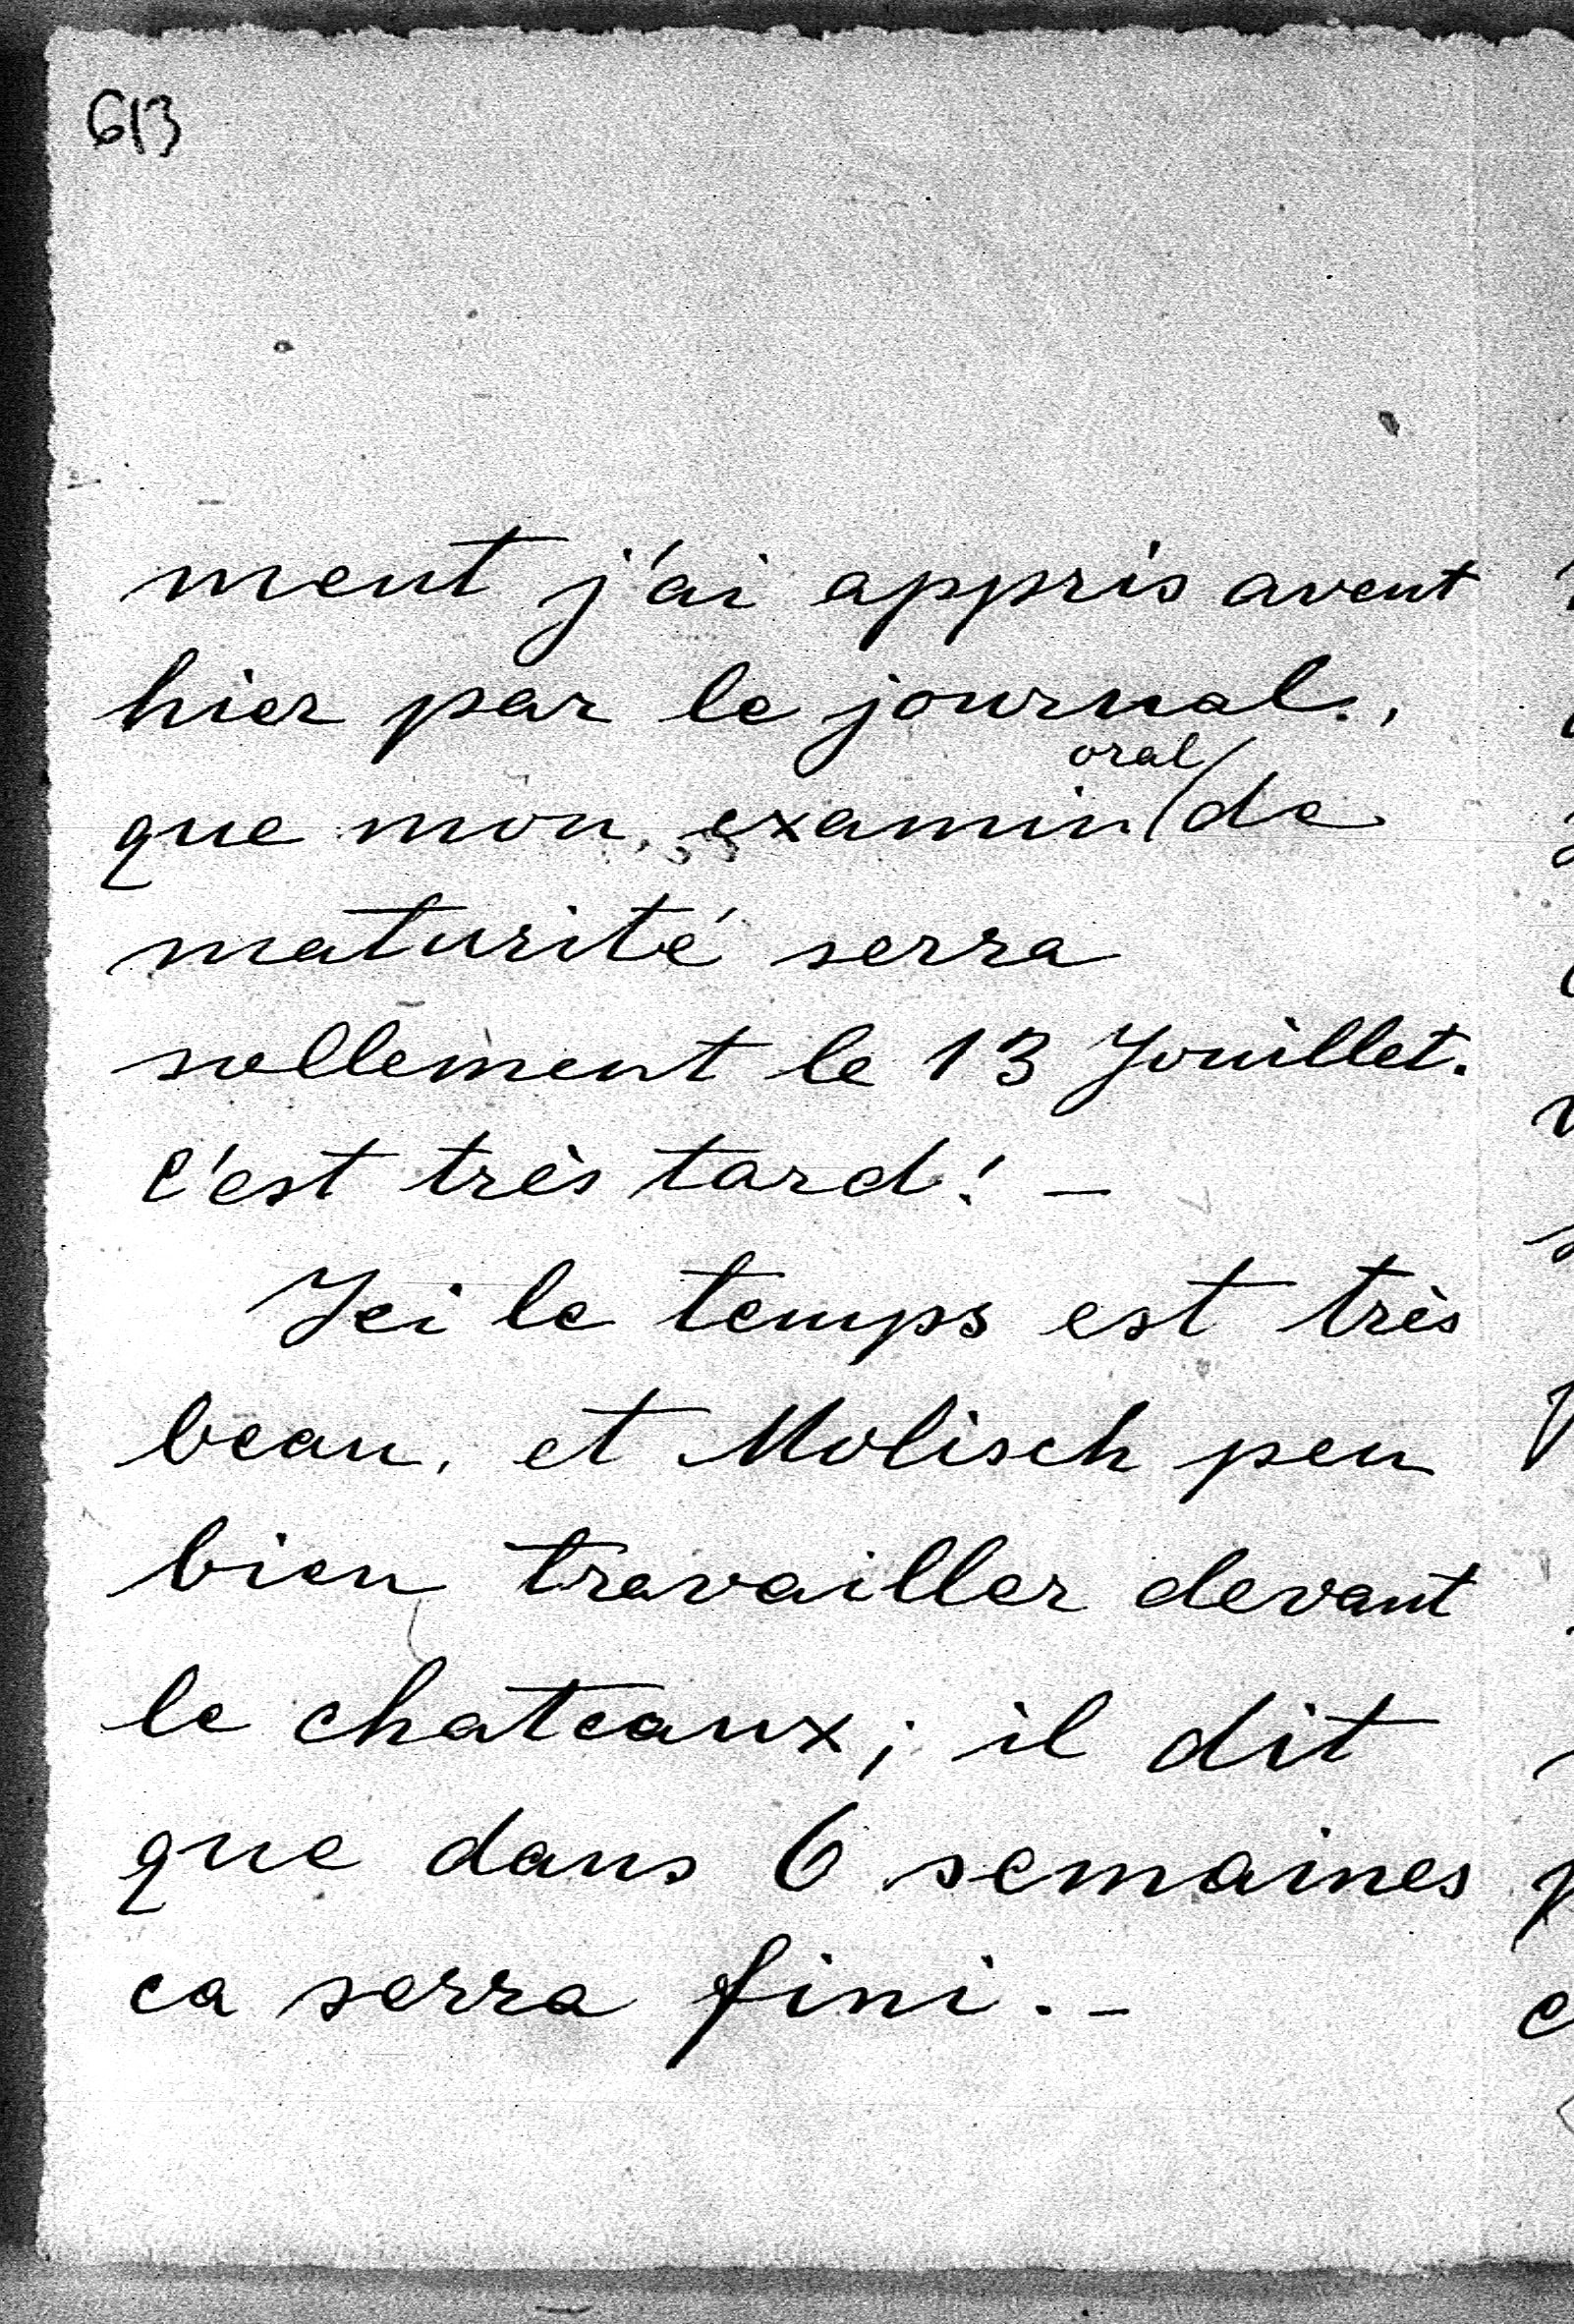 613
ment j'ai appris avent
hier par le journal.,
oral
que mon examin de
maturité serra
sellement le 13 Jouillet.
C'est très tard! –
Ici le temps est très
beau, et Molisch peu
bien travailler devant
le chateaux; il dit
que dans 6 semaines
ca serra fini. –